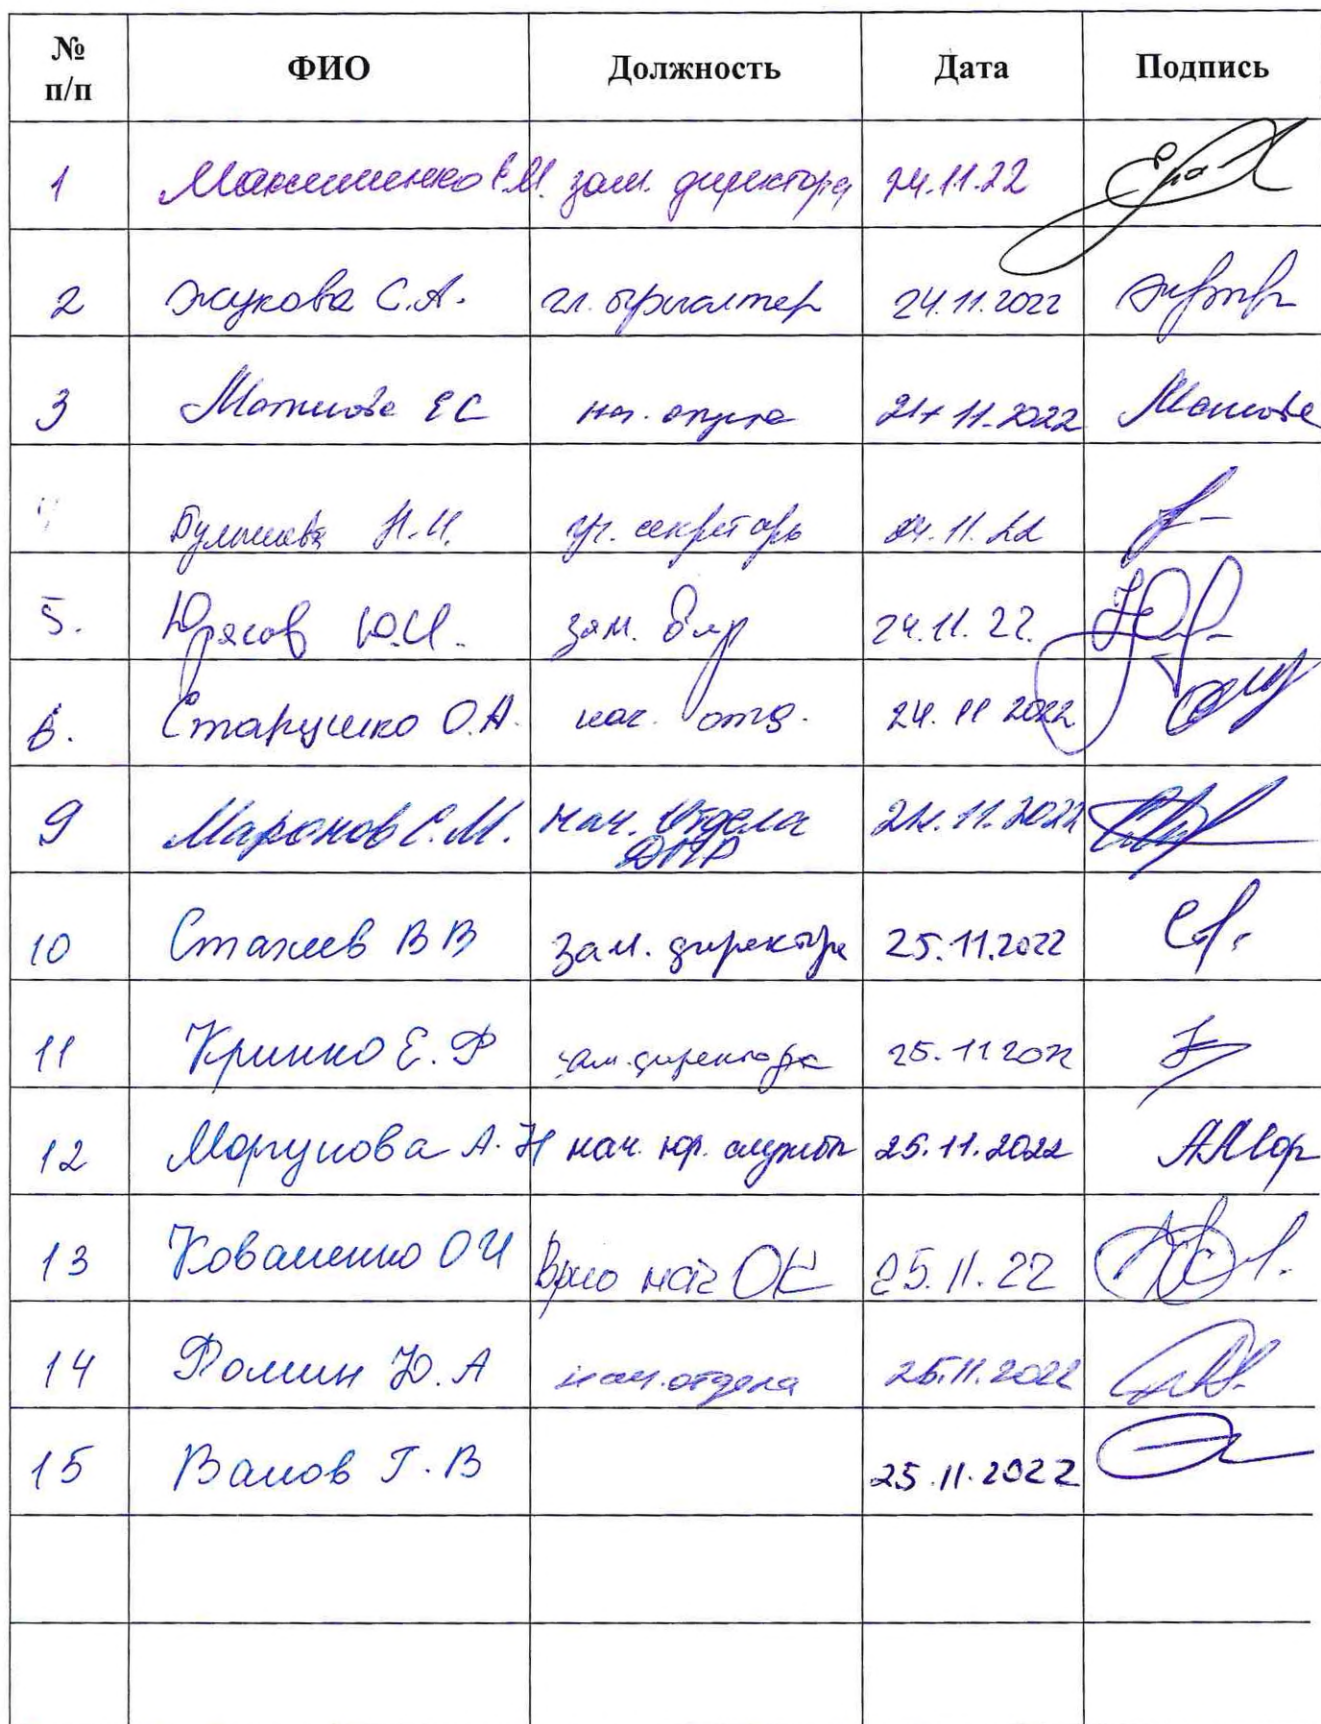 № п/п ФИО Должность Дата Подпись
1 Максименко Е.М. зам. директора 24.11.22
2 Жукова С.А. гл. бухгалтер 24.11.2022
3 ЕС 24 11.2022
Н.И. уч. секретарь 24.11.22
5. Юрасов Ю.И. зам. дир 24.11.22.
6. Старушко О.А. нач. отд. 24.11 2022
9 Миронов С.М. нач. отдела 24.11.2022
10 Стахеев В В зам. директора 25.11.2022
11 Кринко Е.Ф зам. директора 25.11 2022
12 Моргунова А.Н нач. юр. службы 25.11.2022
13 Коваленко О И Врио нач ОК 25.11.22
14 Фомин Ю.А нач. отдела 25.11.2022
15 Г.В 25.11.2022